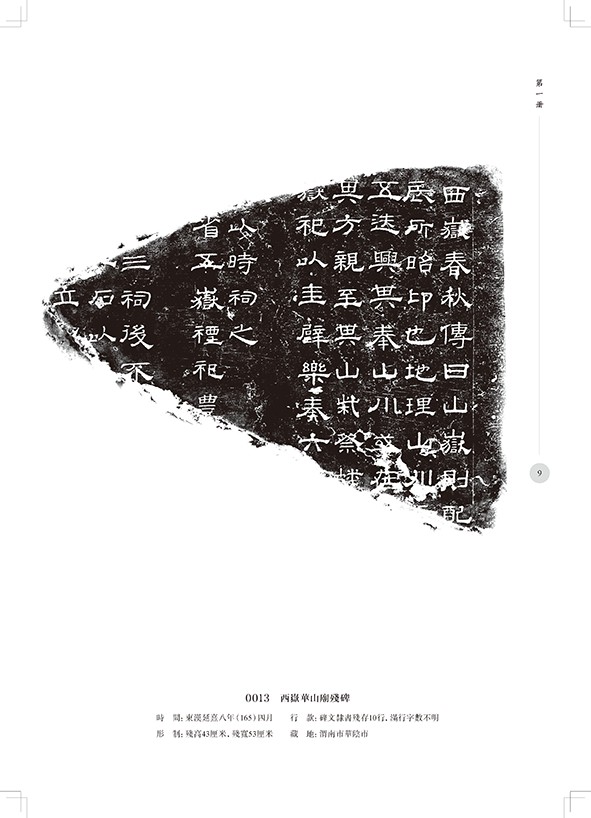 第一册
西嶽春秋傳曰山嶽則配
辰所昭卬也地理山川
五迭興其奉山川或在
其方親至其山柴祭燔
嶽祀以圭璧樂奏六
以時祠之
省五嶽禋祀豊
三祠後不
石以
立
9
0013 西嶽華山廟殘碑
時 間：東漢延熹八年（165）四月
行 款：碑文隸書殘存10行，滿行字數不明
形 制：殘高43厘米，殘寬53厘米
藏 地：渭南市華陰市